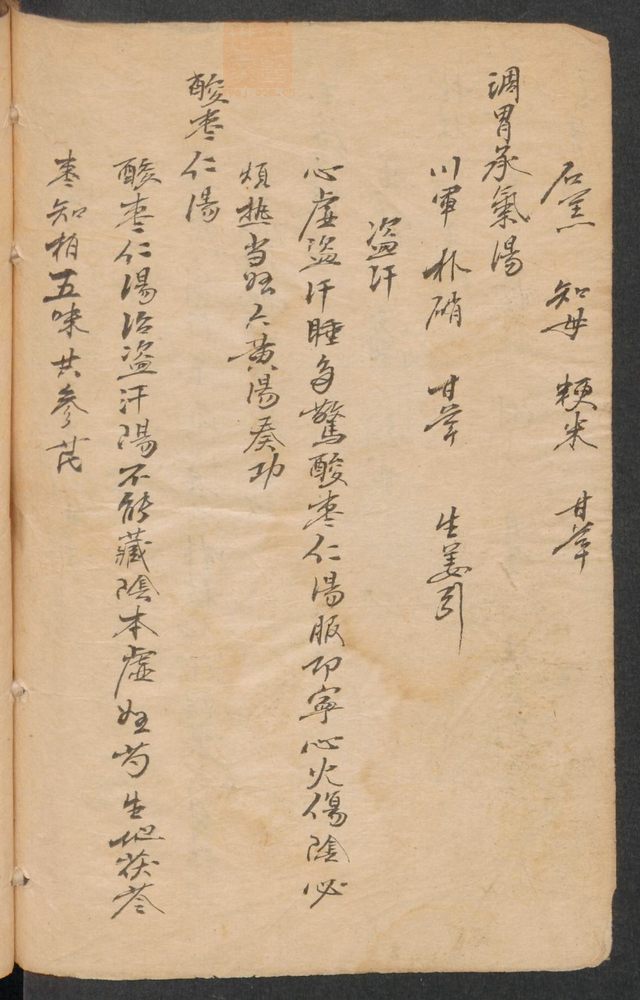 石羔 知母 粳米 甘草
調胃承氣湯
川軍 朴硝 甘草 生姜引
盜汗
心虛盜汗睡多驚酸枣仁湯服即寧心火傷陰必
煩熱当归六黄湯奏功
酸枣仁湯
酸枣仁湯治盜汗陽不能藏陰本虛归芍生地茯苓
枣知柏五味共參芪